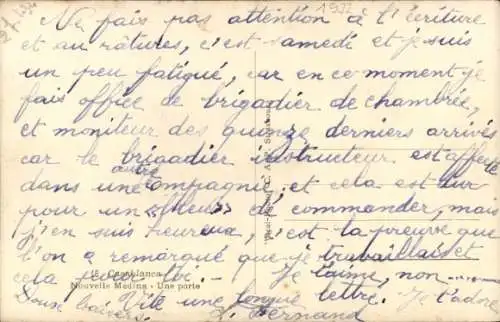 1932
21/7/32
Ne fais pas attention à l'écriture
et au râtures, c'est samedi et je suis
un peu fatigué, car en ce moment je
fais office de brigadier de chambrée,
et moniteur des quinze derniers arrivés
car le brigadier instructeur est affecté
autre
dans une compagnie, et cela est dur
pour un « » de commander, mais
j'en suis heureux, c'est la preuve que
l'on a remarqué que je travaillais et
cela pour toi. - Je t'aime, non......
18. Casablanca
Nouvelle Medina - Une porte
Vite une longue lettre. Je t'adore
Doux baisers
Fernand